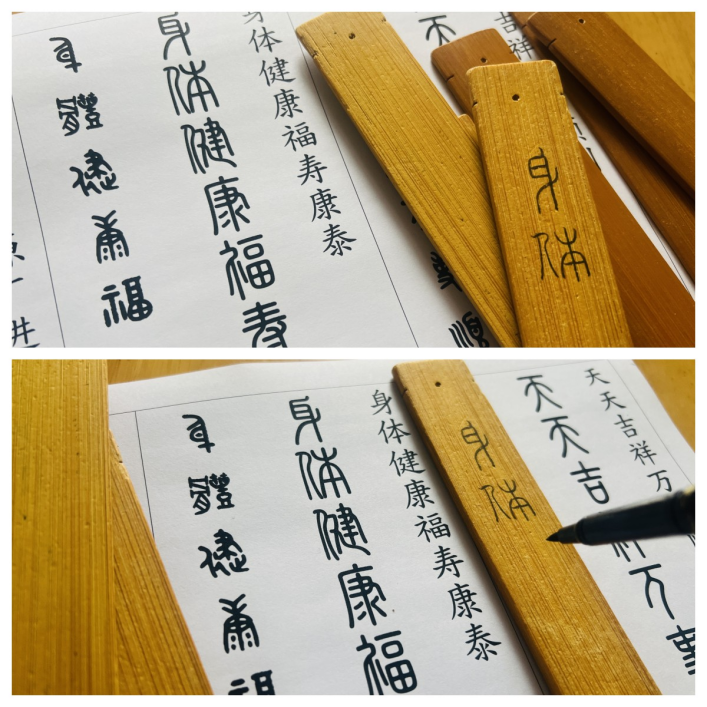 身體健康福
身体健康福寿
身体健康福寿康泰
身体
天
吉祥
身體健康福
身体健康福
身体健康福寿康泰
身体
天天吉
万事
天天吉祥万